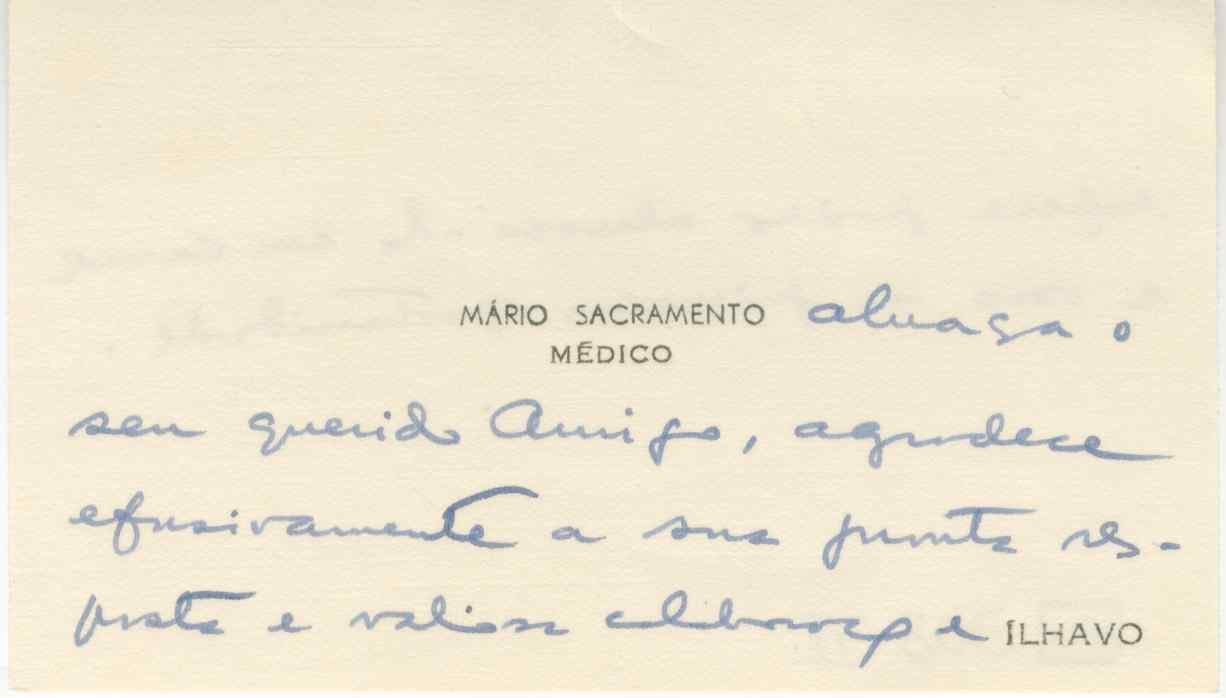 MÁRIO SACRAMENTO abraça o
MÉDICO
seu querido Amigo, agradece
efusivamente a sua pronta res-
posta e valiosa colaboração e ÍLHAVO